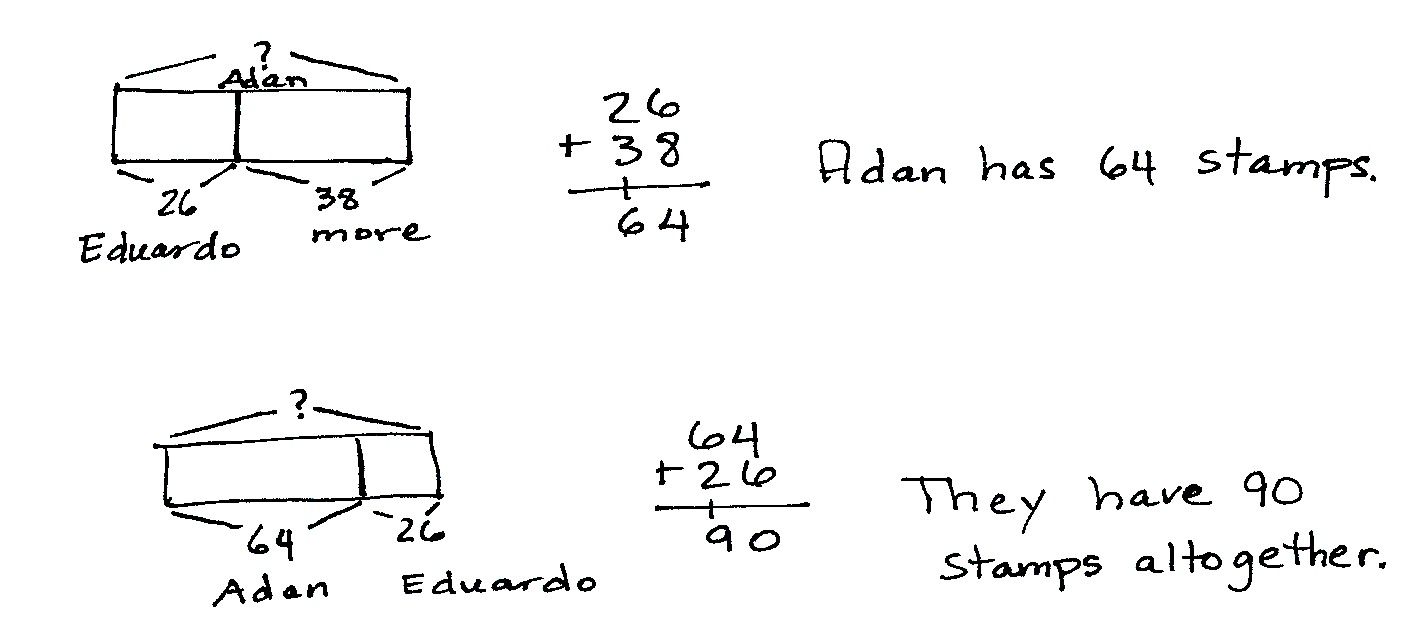 ?
Adan
26 38
Eduardo more
26
+ 38
64
Adan has 64 stamps.
?
64 26
Adan Eduardo
64
+ 26
90
They have 90
stamps altogether.